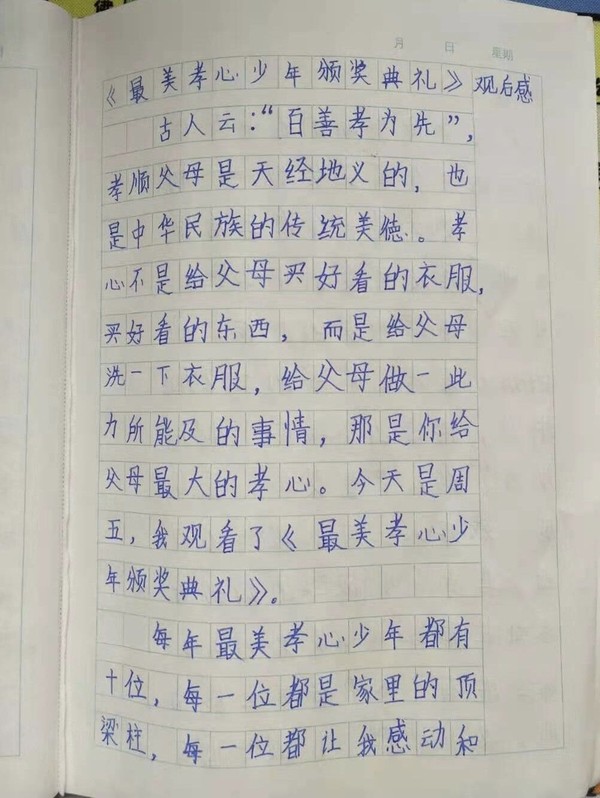 月 日 星期
《最美孝心少年颁奖典礼》观后感
古人云:“百善孝为先”,
孝顺父母是天经地义的,也
是中华民族的传统美德。孝
心不是给父母买好看的衣服,
买好看的东西,而是给父母
洗一下衣服,给父母做一此
力所能及的事情,那是你给
父母最大的孝心。今天是周
五,我观看了《最美孝心少
年颁奖典礼》。
每年最美孝心少年都有
十位,每一位都是家里的顶
梁柱,每一位都让我感动和